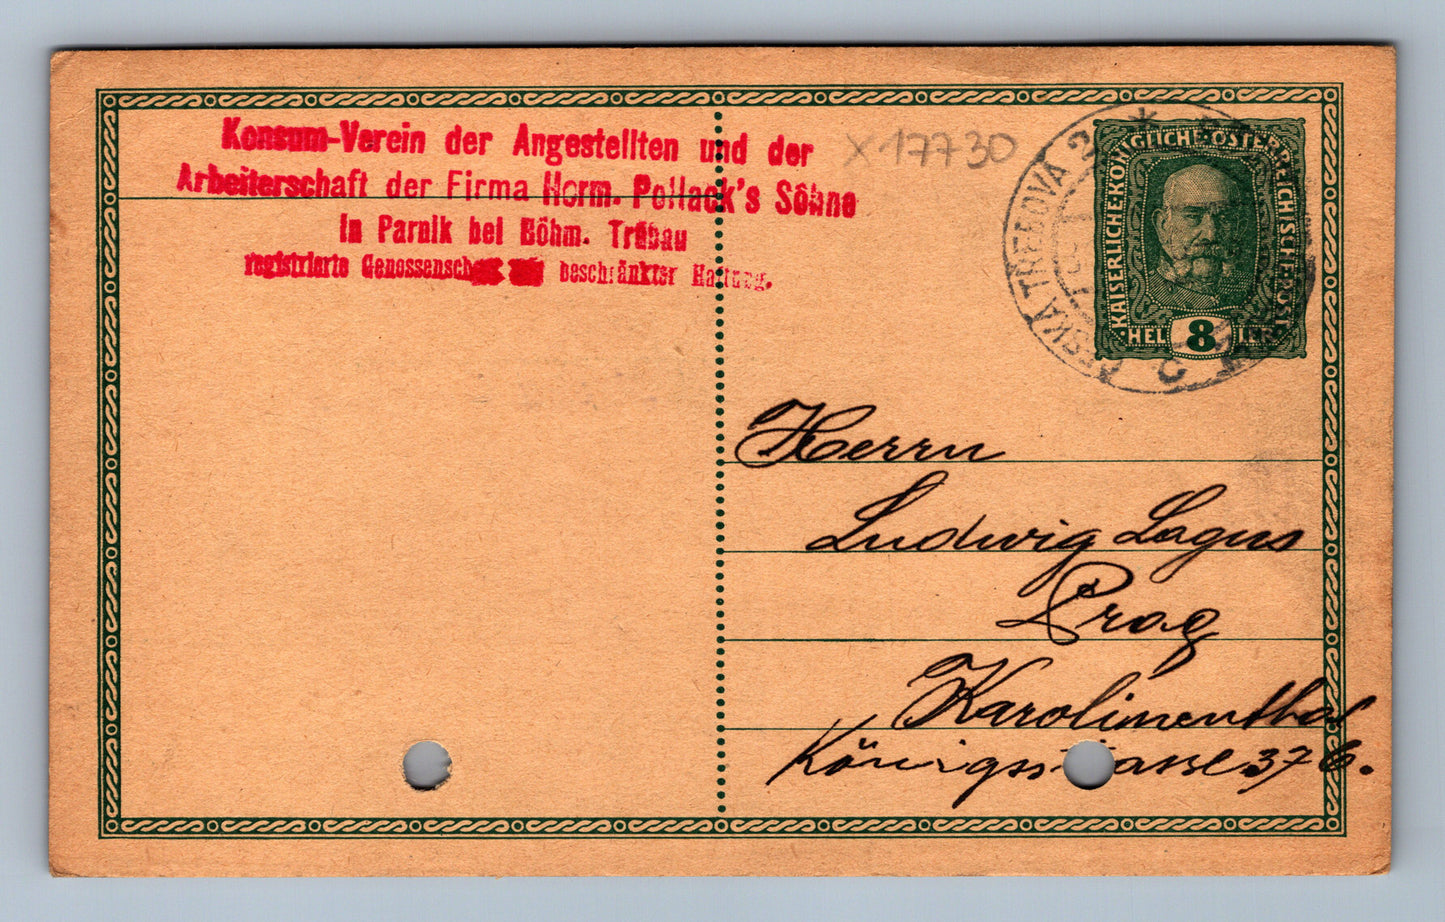 Konsum-Verein der Angestellten und der
Arbeiterschaft der Firma Herm. Pollack's Söhne
in Parnik bei Böhm. Trübau
registrierte Genossensch beschränkter Haftung.
X 17730
ČESKÁ TŘEBOVÁ 2
KAISERLICHE·KÖNIGLICHE·ÖSTERREICHISCHE·POST
HELLER 8
Herrn
Ludwig Lagus
Prag
Karolinenthal
Königsstrasse 376.